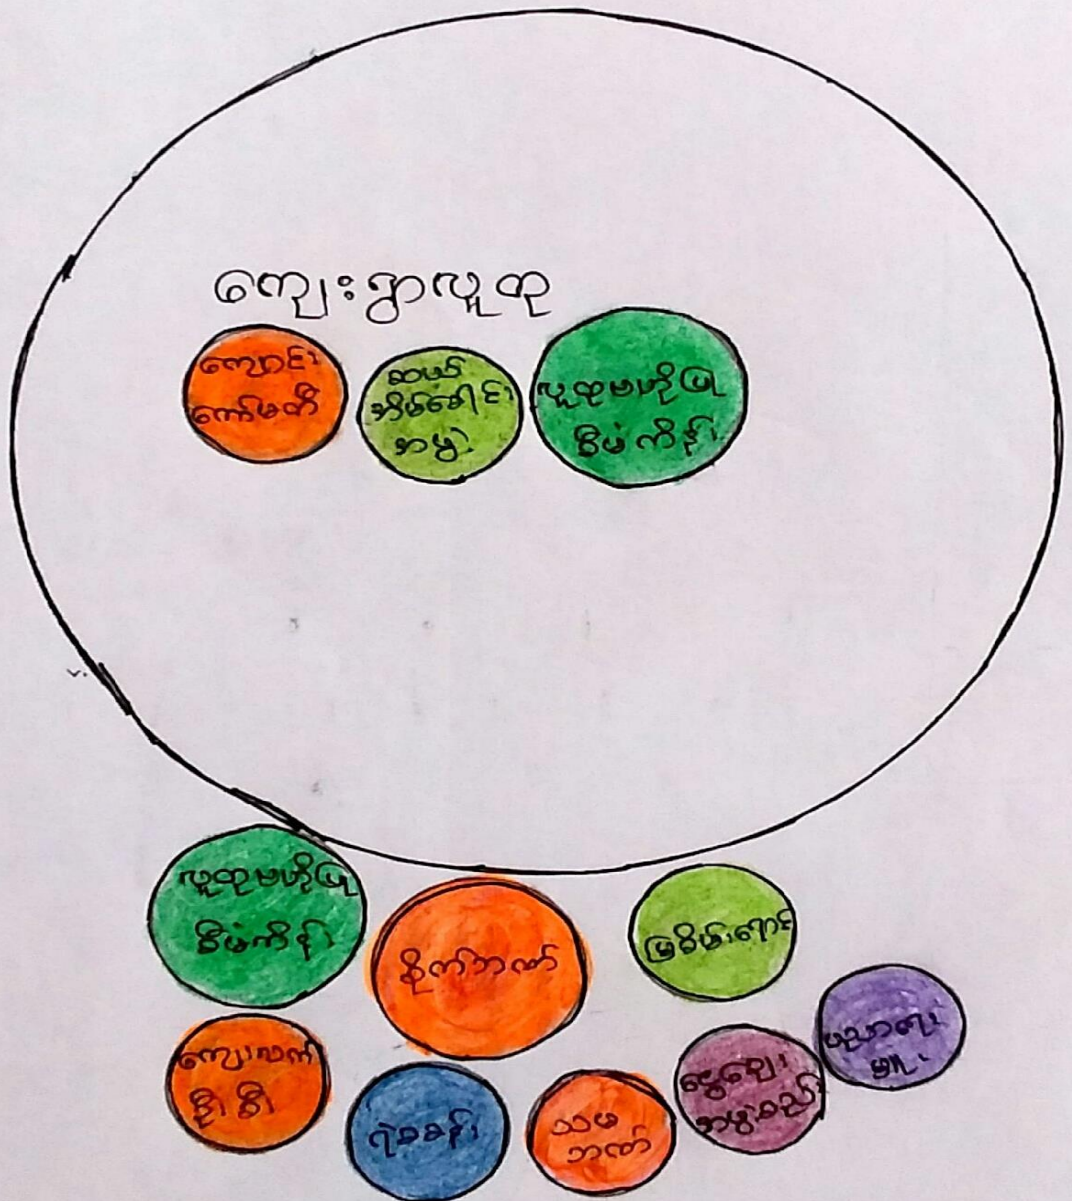 ကျေးရွာလူထု
ကျောင်း
ကော်မတီ
ဆယ်
အိမ်ခေါင်း
အဖွဲ့
လူထုဗဟိုပြု
စီမံကိန်း
လူထုဗဟိုပြု
စီမံကိန်း
စိုက်ဘဏ်
မြစိမ်းရောင်
ကျေးလက်
ဦးစီး
ရဲစခန်း
သမ
ဘဏ်
ငွေချေး
အဖွဲ့စည်း
ပညာရေး
မှူး